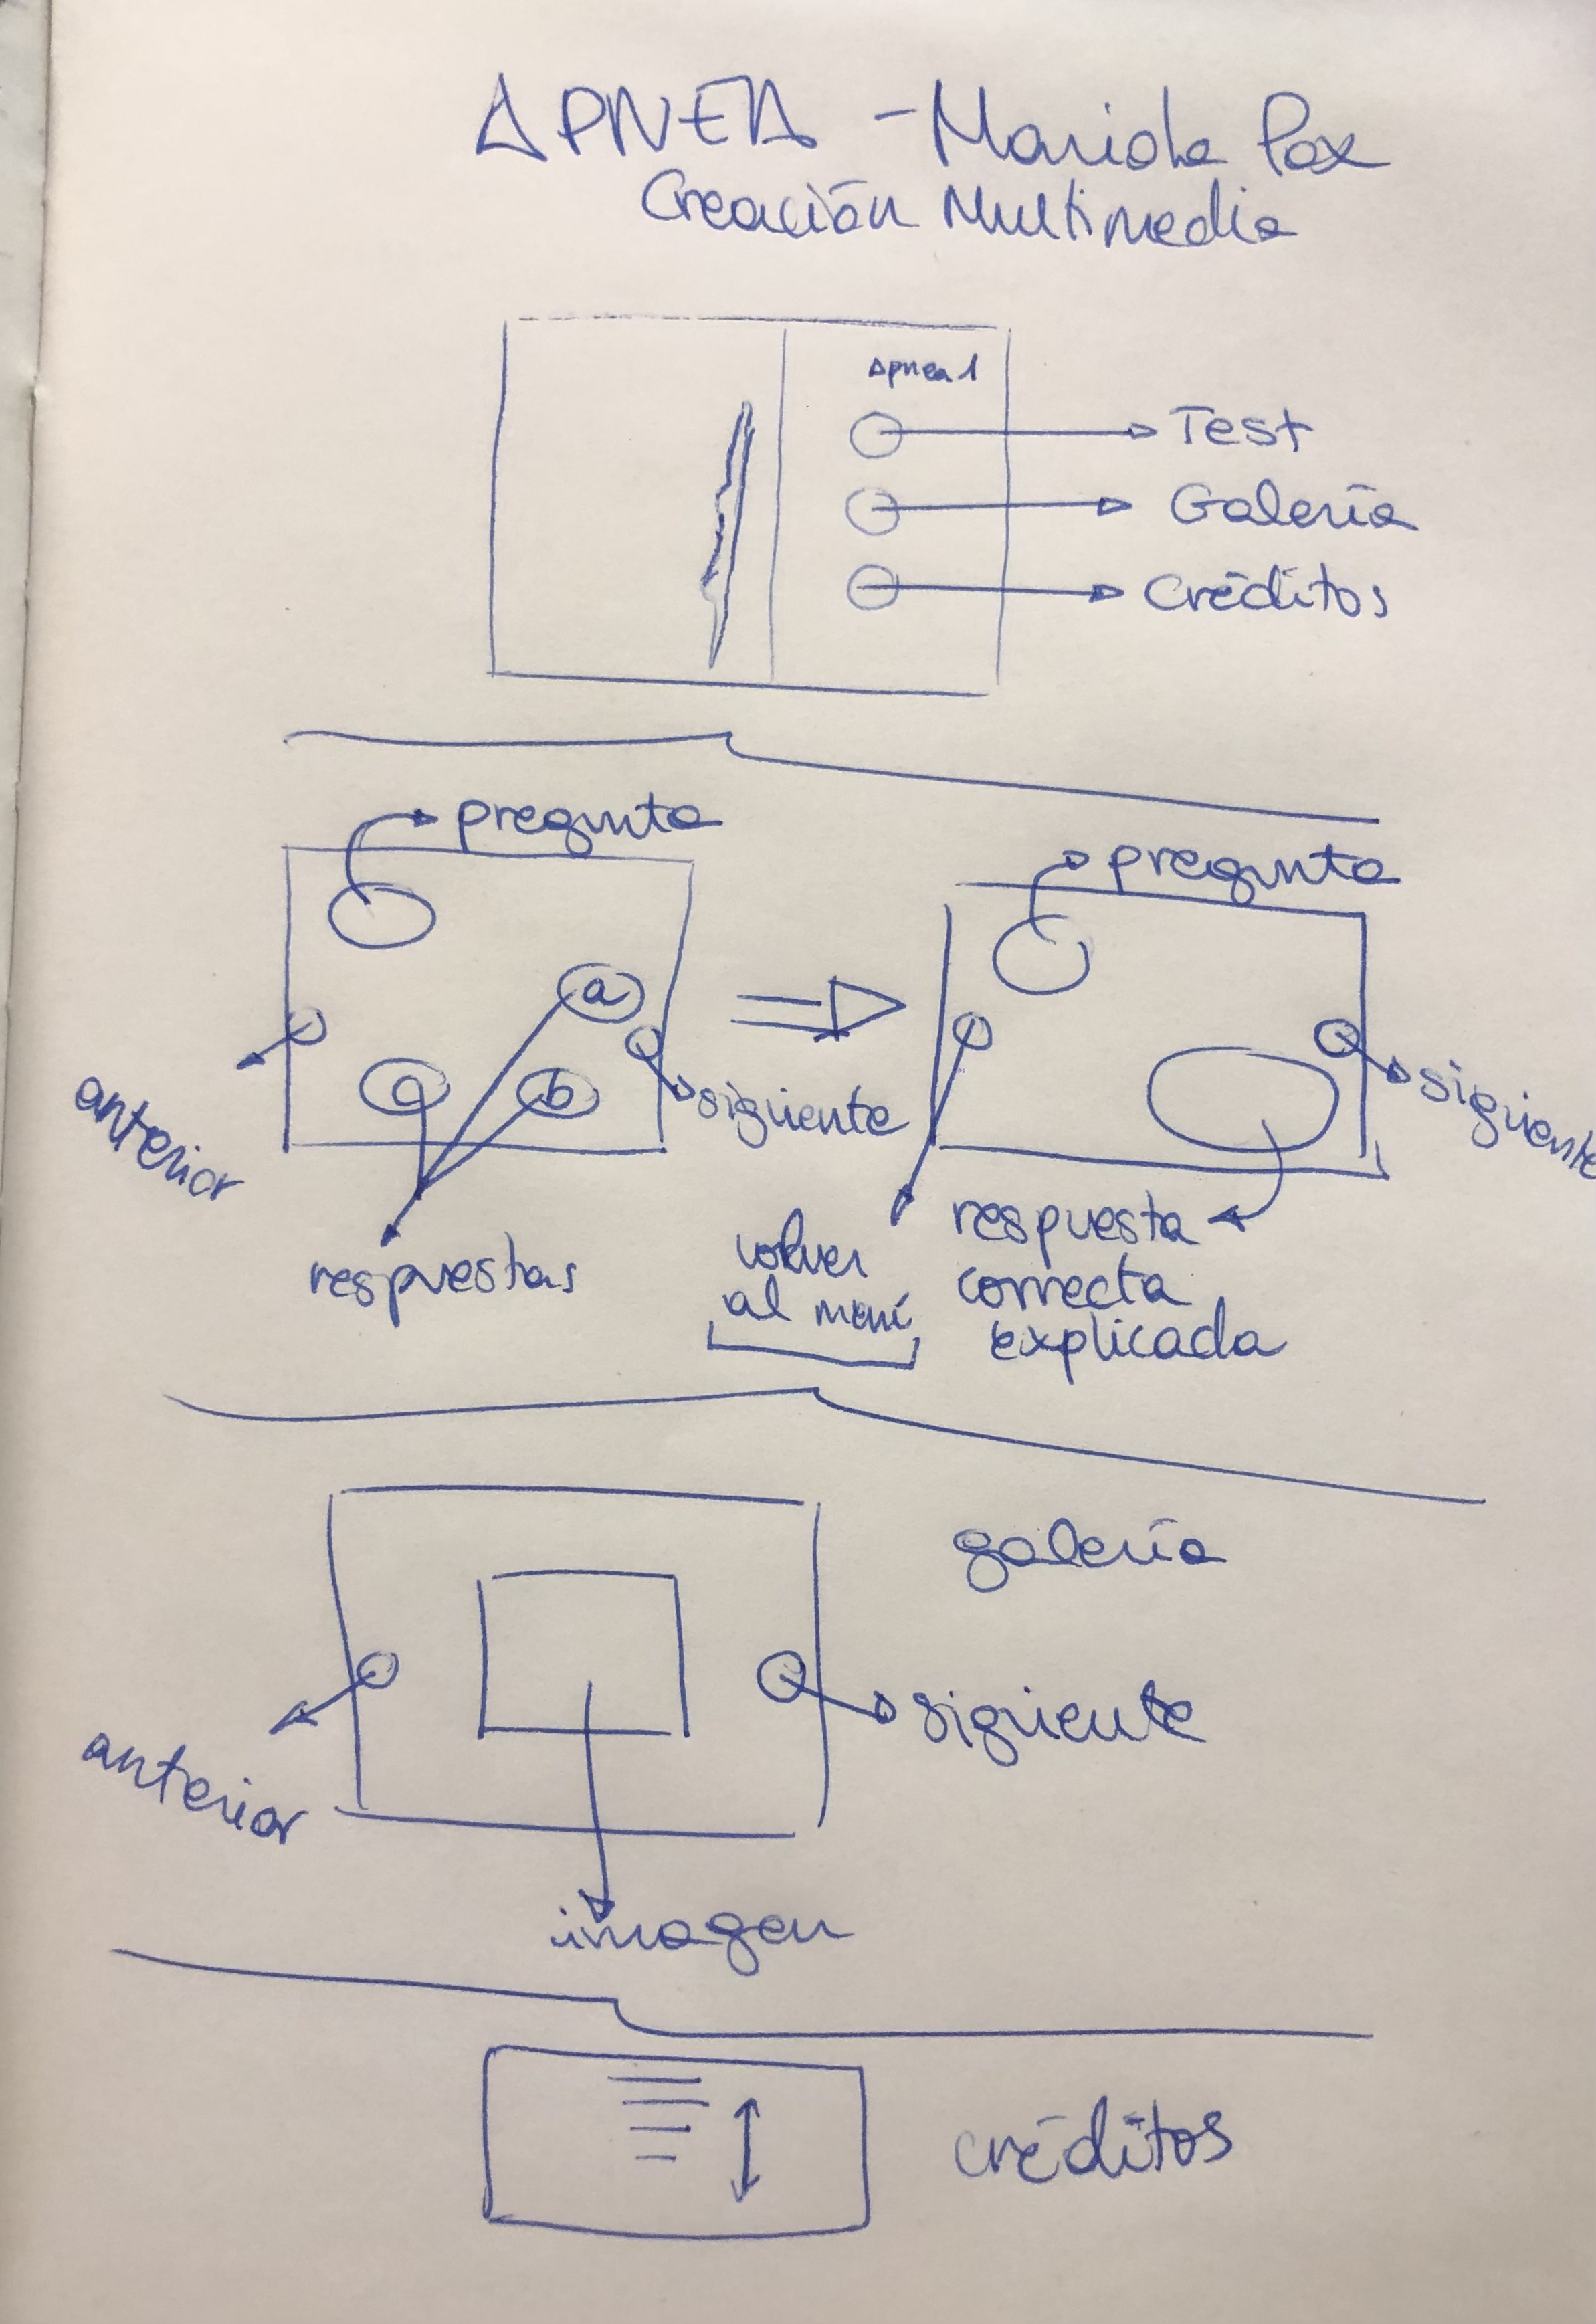 APNEA - Mariola Pox
Creación Multimedia
Apnea 1
Test
Galería
Créditos
pregunta
a
c
b
anterior
siguiente
respuestas
pregunta
siguiente
volver
al menú
respuesta
correcta
explicada
galería
anterior
siguiente
imagen
créditos